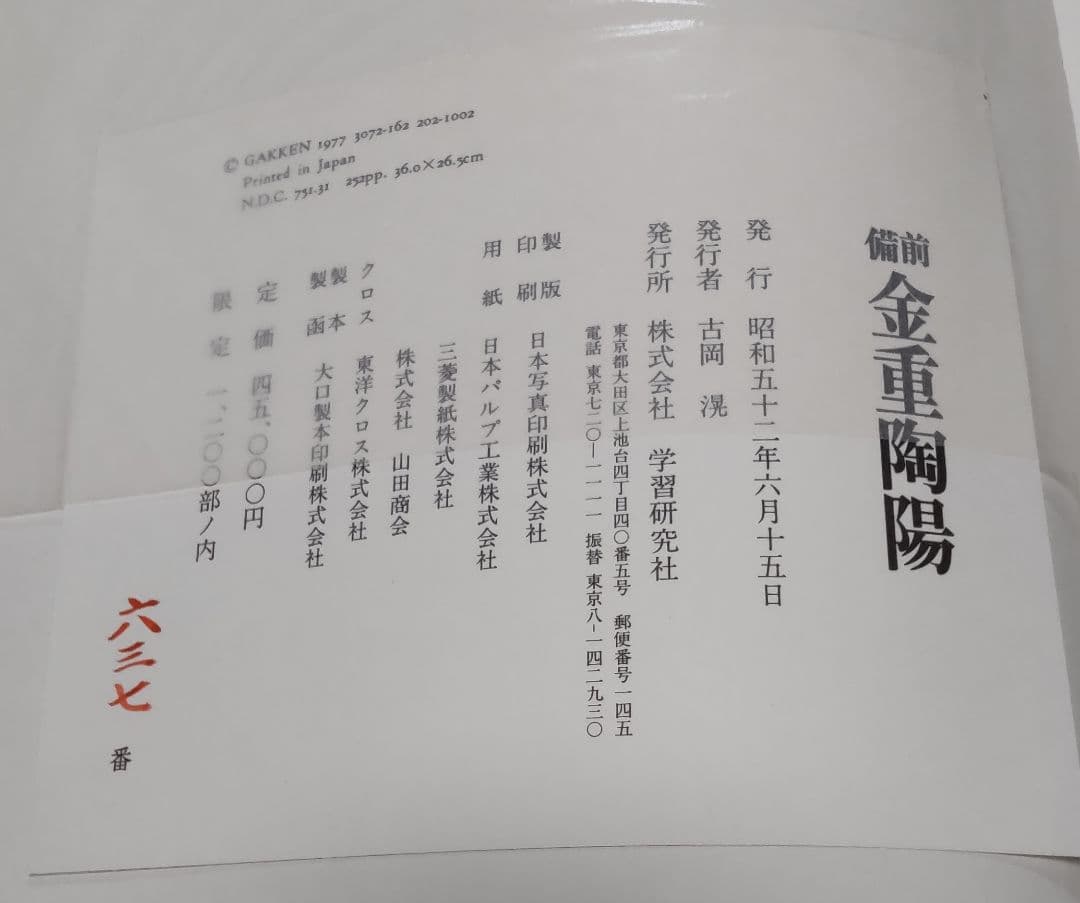 備前 金重陶陽
発行 昭和五十二年六月十五日
発行者 古岡 滉
発行所 株式会社 学習研究社
東京都大田区上池台四丁目四〇番五号 郵便番号一四五
電話 東京七二〇—一一一一 振替 東京八-一四二九三〇
製版
印刷 日本写真印刷株式会社
用紙 日本パルプ工業株式会社
三菱製紙株式会社
株式会社 山田商会
クロス 東洋クロス株式会社
製本
製函 大口製本印刷株式会社
定価 四五、〇〇〇円
限定 一、二〇〇部ノ内
六三七 番
© GAKKEN 1977 3072-162 202-1002
Printed in Japan
N.D.C. 751.31 252pp. 36.0×26.5cm